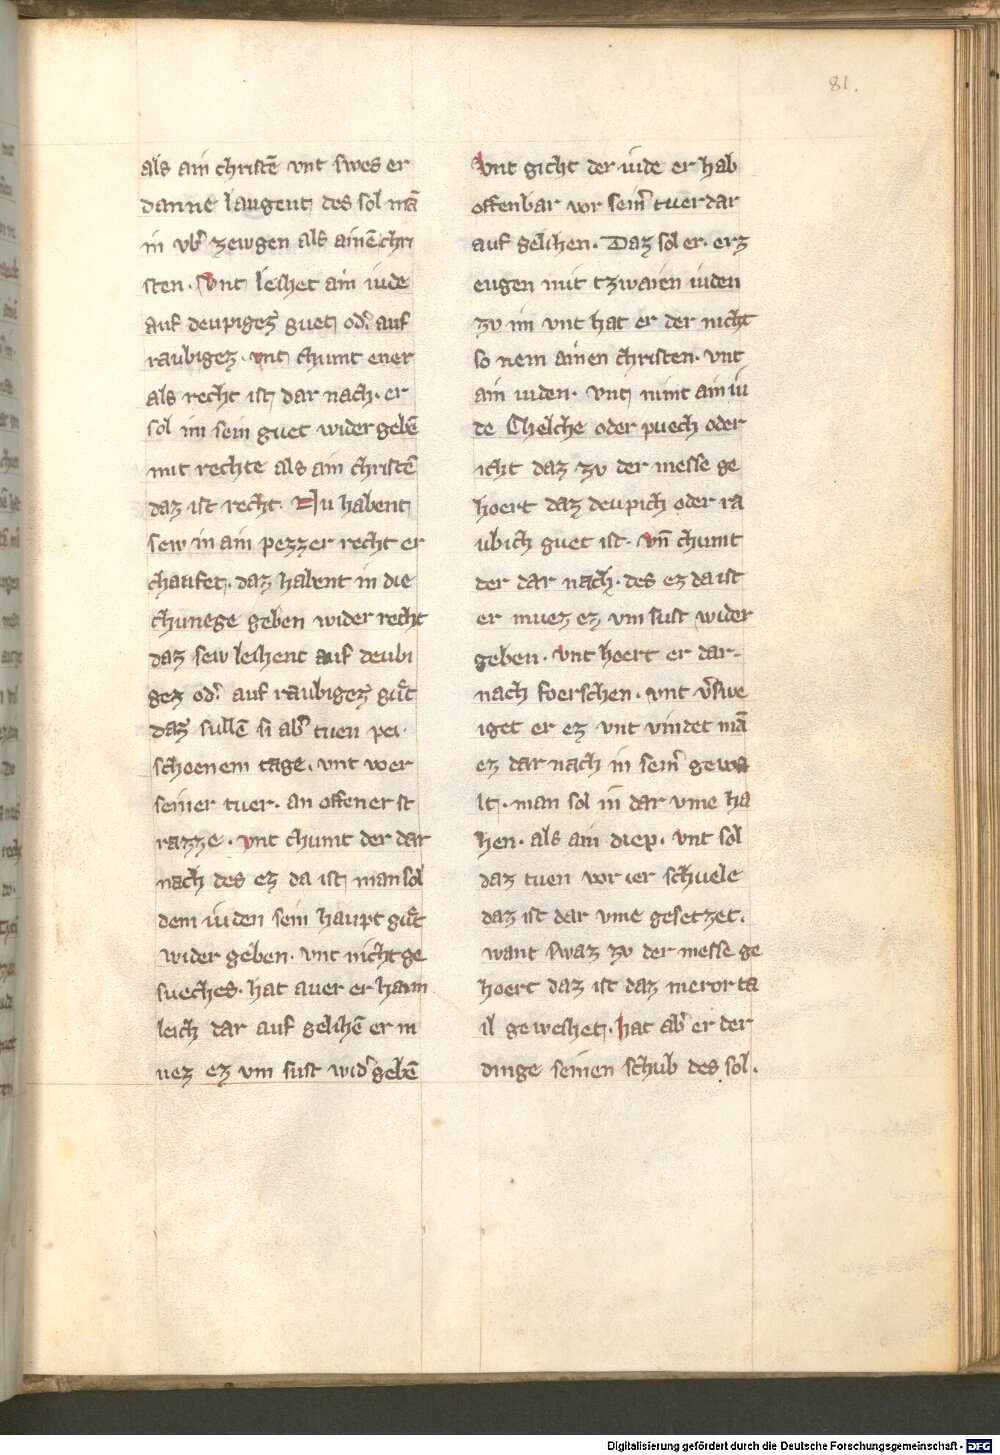 81.
als ain christē vnt swes er
danne laugent des sol mā
in vb᷑ zewgen als ainē chri
sten. Vnt leihet ain iude
auf deupigez guet od᷑ auf
raubigez. vnt chumt ener
als recht ist dar nach. er
sol im sein guet wider gebē
mit rechte als ain christē
daz ist recht. Nu habent
sew in ain pezzer recht er
chaufet. daz habent in die
chunege geben wider recht
daz sew leihent auf deubi
gez od᷑ auf raubigez guͤt
daz sullē si ab᷑ tuen pei
schoenem tage. vnt voer
seiner tuer. an offener st
razze. vnt chumt der dar
nach des ez da ist man sol
dem iuden sein haupt guͤt
wider geben. vnt nicht ge
sueches. hat auer er haim
leich dar auf gelihē er m
uez ez vm sust wid᷑ gebē
Vnt gicht der iude er hab
offenbar vor sein᷑ tuer dar
auf gelihen. Daz sol er. erz
eugen mit tzwaien iuden
zv im vnt hat er der nicht
so nem ainen christen. vnt
ain iuden. vnt nimt ain iu
de Chelche oder puech oder
icht daz zv der messe ge
hoert daz deupich oder ra
ubich guet ist. vn̄ chumt
der dar nach. des ez da ist
er muez ez vm sust wider
geben. vnt hoert er dar-
nach foerschen. vnt v᷑swe
iget er ez vnt vindet mā
ez dar nach in sein᷑ gewa
lt. man sol in dar vme ha
hen. als ain diep. vnt sol
daz tuen vor ier schuele
daz ist dar vme gesetzet.
want swaz zv der messe ge
hoert daz ist daz meror ta
il geweihet. hat ab᷑ er der
dinge seinen schub des sol.
Digitalisierung gefördert durch die Deutsche Forschungsgemeinschaft - DFG